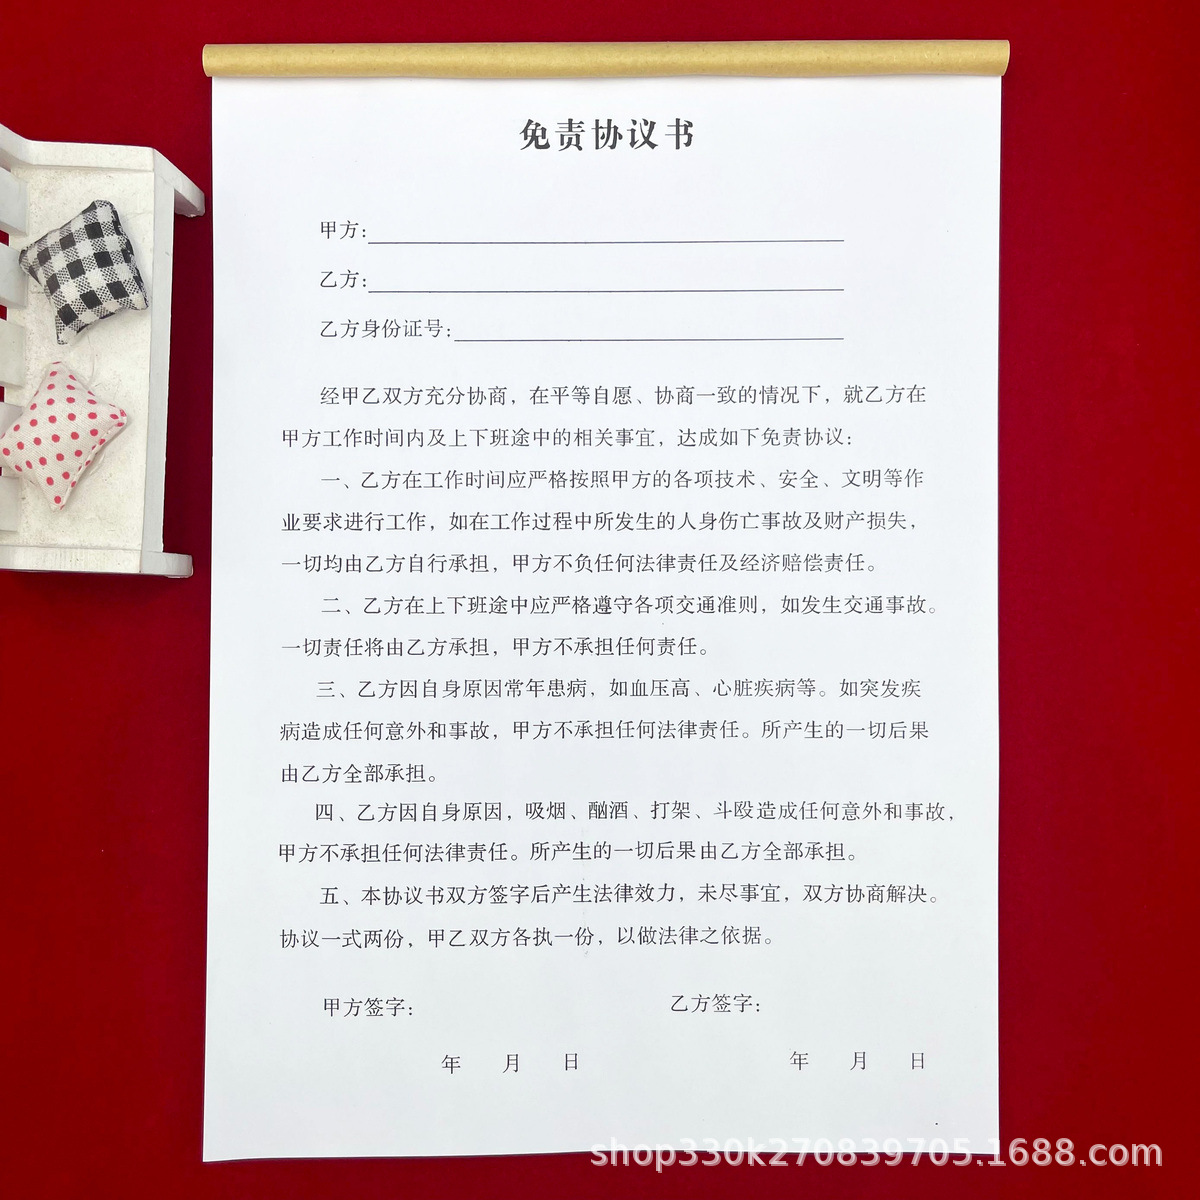 免责协议书
甲方:
乙方:
乙方身份证号:
经甲乙双方充分协商，在平等自愿、协商一致的情况下，就乙方在
甲方工作时间内及上下班途中的相关事宜，达成如下免责协议:
一、乙方在工作时间应严格按照甲方的各项技术、安全、文明等作
业要求进行工作，如在工作过程中所发生的人身伤亡事故及财产损失，
一切均由乙方自行承担，甲方不负任何法律责任及经济赔偿责任。
二、乙方在上下班途中应严格遵守各项交通准则，如发生交通事故。
一切责任将由乙方承担，甲方不承担任何责任。
三、乙方因自身原因常年患病，如血压高、心脏疾病等。如突发疾
病造成任何意外和事故，甲方不承担任何法律责任。所产生的一切后果
由乙方全部承担。
四、乙方因自身原因，吸烟、酗酒、打架、斗殴造成任何意外和事故，
甲方不承担任何法律责任。所产生的一切后果由乙方全部承担。
五、本协议书双方签字后产生法律效力，未尽事宜，双方协商解决。
协议一式两份，甲乙双方各执一份，以做法律之依据。
甲方签字: 乙方签字:
年 月 日 年 月 日
shop330k270839705.1688.com